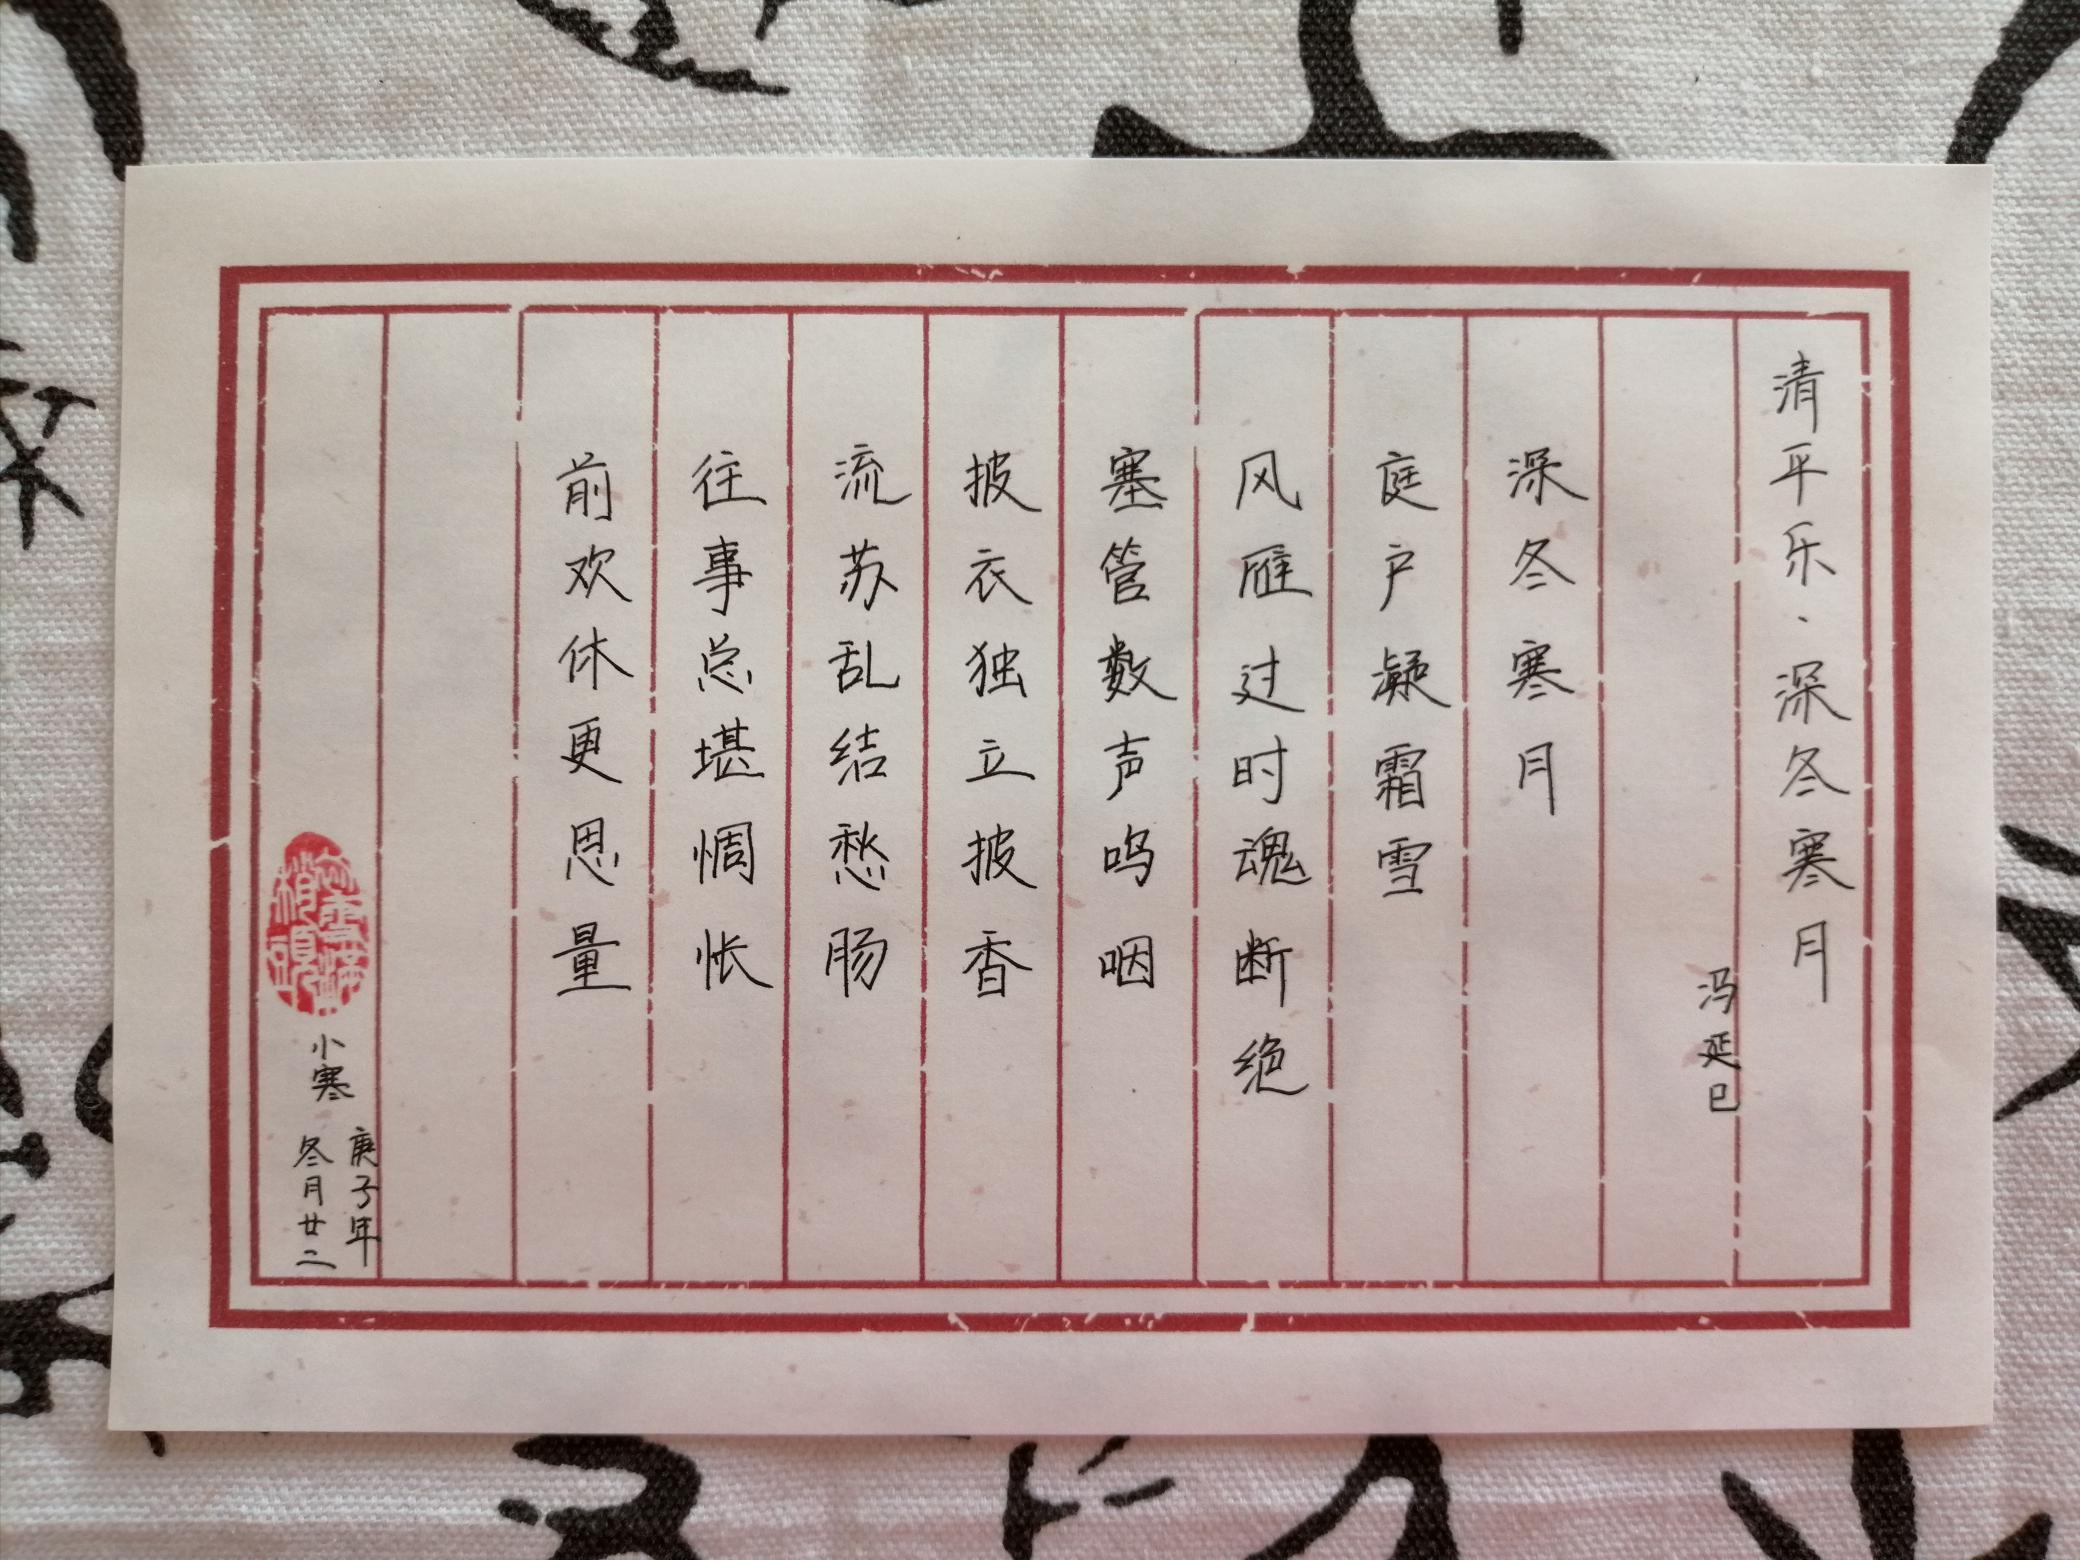 清平乐·深冬寒月
冯延巳
深冬寒月
庭户凝霜雪
风雁过时魂断绝
塞管数声呜咽
披衣独立披香
流苏乱结愁肠
往事总堪惆怅
前欢休更思量
小寒
庚子年
冬月廿二